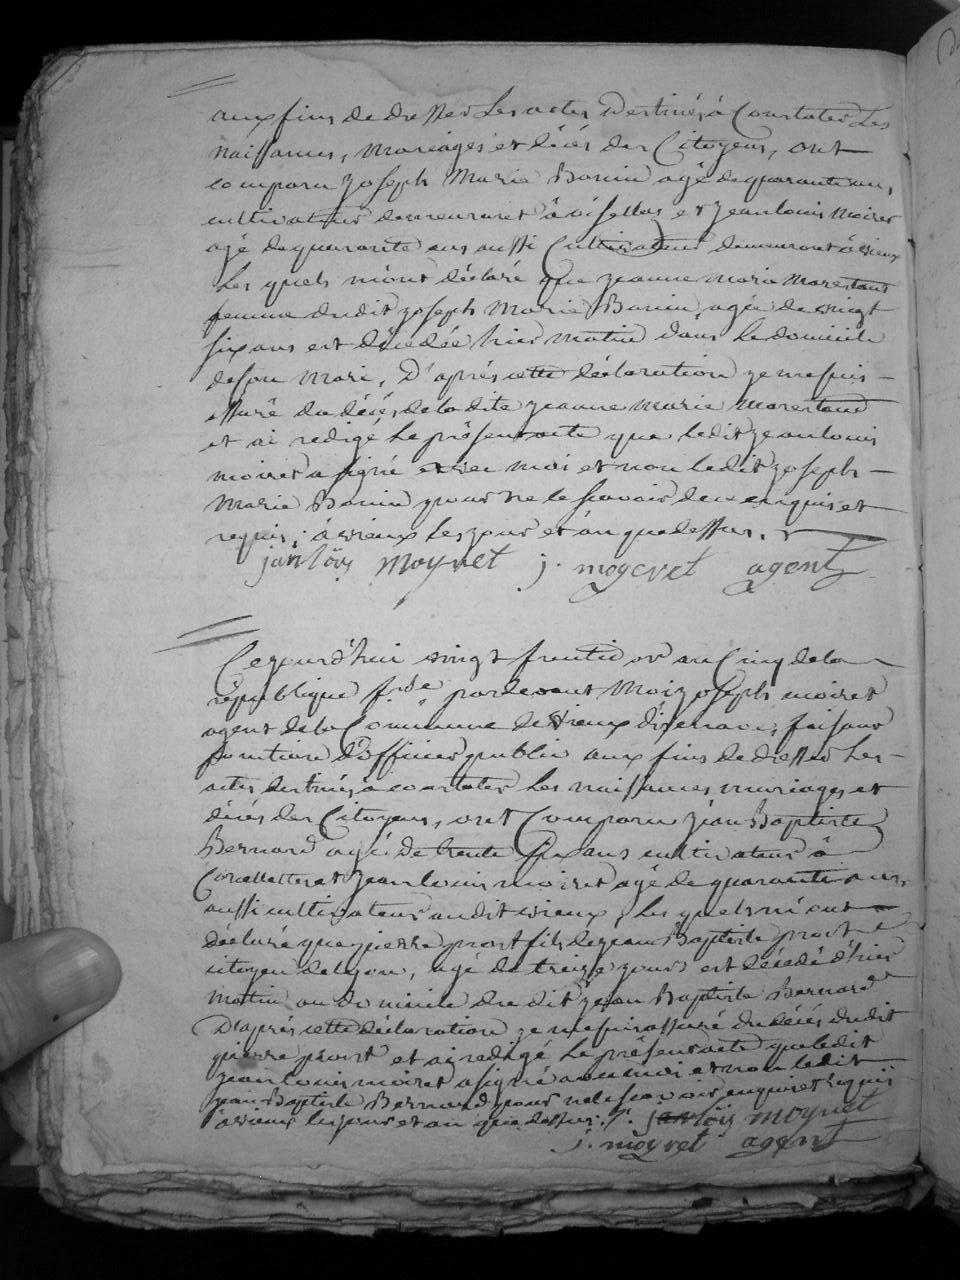 aux fins de dresser Les actes Destinés à Constater Les
naissances, mariages et décés des Citoyens, ont
comparu joseph Marie Bonin agé de quarante ans,
cultivateur demeurant à oisellas et jean louis moiret
agé de quarante ans aussi Cultivateur demeurant à vieux
Les quels m'ont déclaré que jeanne marie marestant
femme dudit joseph Marie Bonin, agée de vingt
six ans est décédée hier matin dans Le domicile
de son Mari, D'aprés cette déclaration je me suis
assuré du décés de ladite jeanne marie Marestand
et ai redigé Le présent acte que ledit jean louis
moiret a signé avec moi et non ledit joseph
Marie Bonin pour ne le scavoir de ce enquis et
requis; à vieux Les jour et an que dessus.
jan loüs moyret j. moyeret agent
Cejourd'hui vingt fructidor an Cinq de la
république f.se pardevant Moi joseph moiret
agent de la Commune de vieux disenave, faisant
fonction d'officier public aux fins de dresser Les
actes destinés à constater Les naissances mariages et
décés des Citoyens, ont Comparu jean Baptiste
Bernard agé de trente six ans cultivateur à
et jean louis moiret agé de quarante ans,
aussi cultivateur audit vieux, Les quels m'ont
déclaré que pierre prost fils de jean Baptiste prost
citoyen de lyon, agé de treize jours est décédé d'hier
matin au domicile dudit jean Baptiste Bernard
D'aprés cette déclaration je me suis assuré du décés dudit
pierre prost et ai redigé Le présent acte que ledit
jean louis moiret a signé avec moi et non ledit
jean Baptiste Bernard pour ne le scavoir enquis et requis
à vieux les jour et an que dessus. jan loüs moyret
j. moyret agent